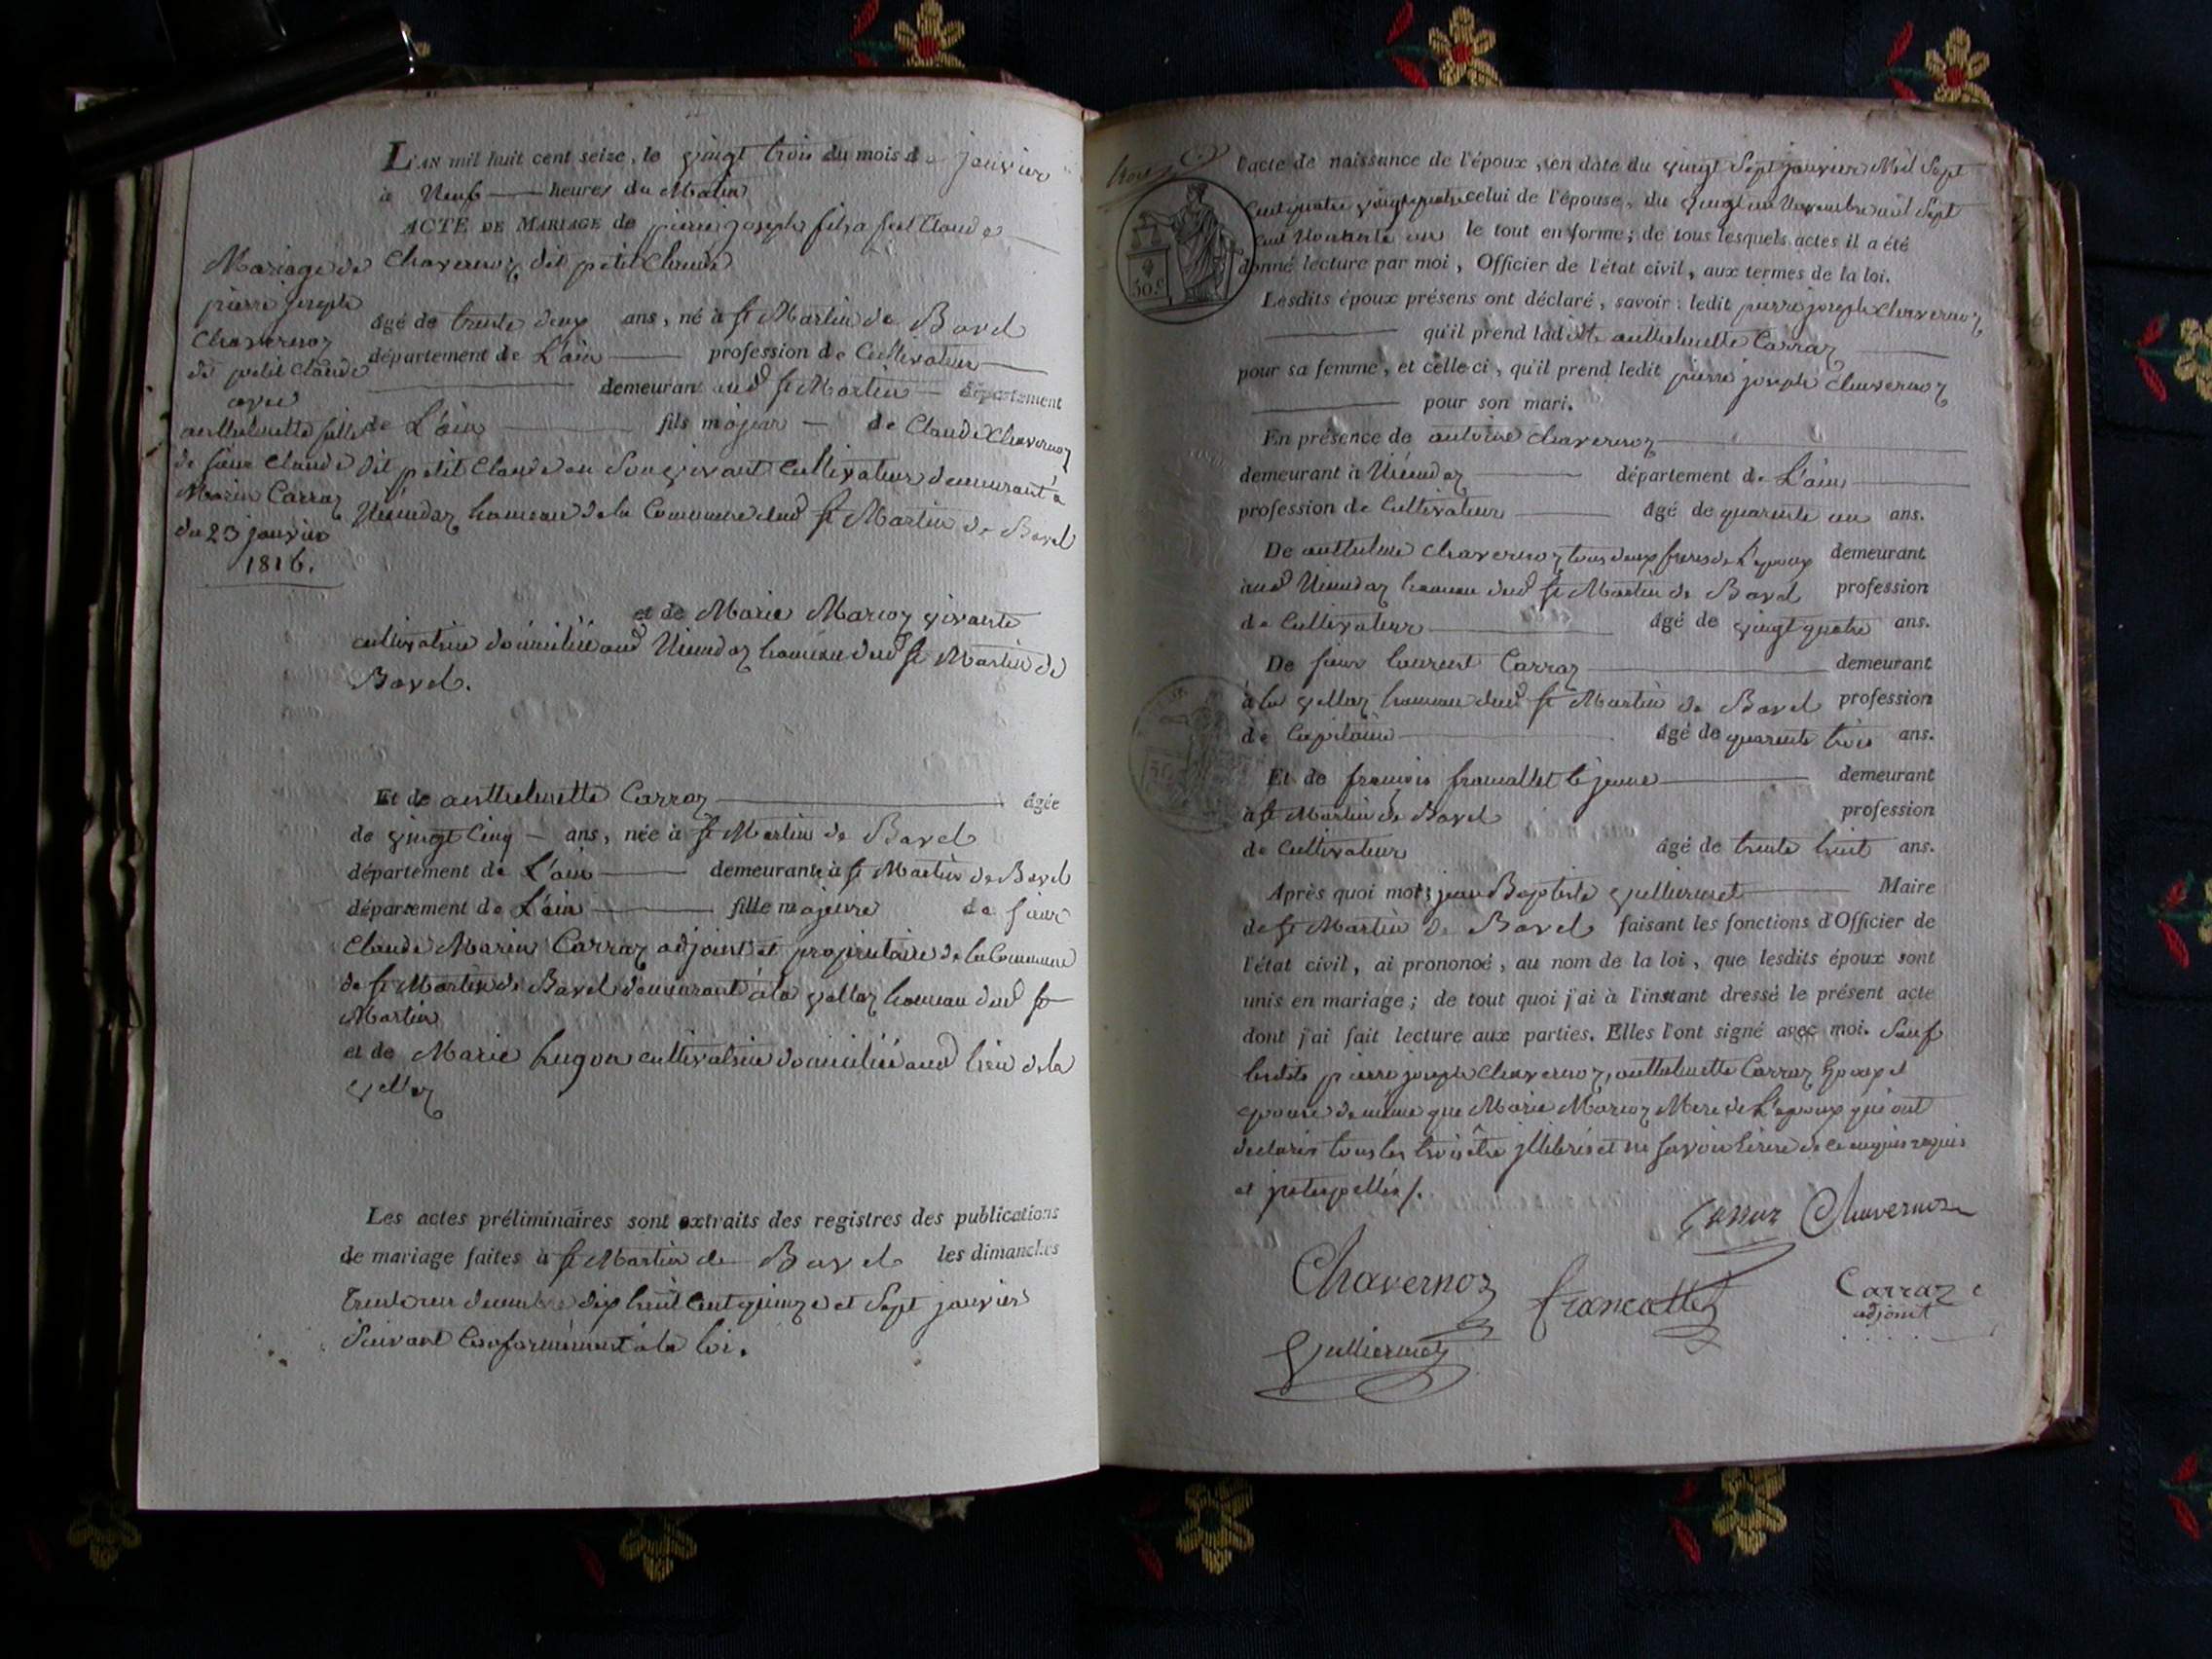 L'AN mil huit cent seize, le vingt trois du mois de janvier
à Neuf heures du Matin
ACTE DE MARIAGE de pierre joseph fils a feu Claude
Chavernoz dit petit Claude
Mariage de
pierre joseph
Chavernoz
dit petit Claude
avec
anthelmette fille
de sieur Claude
Marin Carraz
du 23 janvier
1816.
âgé de trente deux ans, né à st Martin de Bavel
département de L'ain profession de Cultivateur
demeurant aud st Martin département
de L'ain fils majeur de Claude Chavernoz
dit petit Claude en son vivant Cultivateur demeurant à
hameau de la Commune dud st Martin de Bavel
et de Marie Marioz vivante
cultivatrice domiciliée aud hameau dud st Martin de
Bavel.
Et de anthelmette Carraz âgée
de vingt Cinq ans, née à st Martin de Bavel
département de L'ain demeurante à st Martin de Bavel
département de L'ain fille majeure de sieur
Claude Marin Carraz adjoint et propriétaire de la Commune
de st Martin de Bavel demeurant à la vellaz hameau dud st
Martin
et de Marie hugon cultivatrice domiciliée aud lieu de la
vellaz
Les actes préliminaires sont extraits des registres des publications
de mariage faites à st Martin de Bavel les dimanches
trente un decembre dix huit Cent quinze et Sept janvier
Suivant Conformément à la loi.
l'acte de naissance de l'époux, en date du vingt Sept janvier Mil Sept
Cent quatre vingt quatre celui de l'épouse, du vingt un Novembre mil Sept
Cent Nonante un le tout en forme; de tous lesquels actes il a été
donné lecture par moi, Officier de l'état civil, aux termes de la loi.
Lesdits époux présens ont déclaré, savoir: ledit pierre joseph Chavernoz
qu'il prend ladite anthelmette Carraz
pour sa femme, et celle-ci, qu'il prend ledit pierre joseph Chavernoz
pour son mari.
En présence de antoine Chavernoz
demeurant à département de L'ain
profession de Cultivateur âgé de quarente un ans.
De anthelme Chavernoz tous deux freres de L'epoux demeurant
aud hameau dud st Martin de Bavel profession
de Cultivateur âgé de vingt quatre ans.
De sieur laurent Carraz demeurant
à la vellaz hameau dud st Martin de Bavel profession
de Capitaine âgé de quarente trois ans.
Et de françois francallet le jeune demeurant
à st Martin de Bavel profession
de Cultivateur âgé de trente huit ans.
Après quoi moi, jean Baptiste vulliermet Maire
de st Martin de Bavel faisant les fonctions d'Officier de
l'état civil, ai prononcé, au nom de la loi, que lesdits époux sont
unis en mariage; de tout quoi j'ai à l'instant dressé le présent acte
dont j'ai fait lecture aux parties. Elles l'ont signé avec moi. Sauf
lesdits pierre joseph Chavernoz, anthelmette Carraz Epoux et
epouse de même que Marie Marioz Mere de L'epoux qui ont
declarés tous les trois être jlliterés et ne savoir Ecrire de ce enquis requis
et jnterpellés /.
Carraz Chavernoz
Chavernoz francallet Carraz
adjoint
Vulliermet